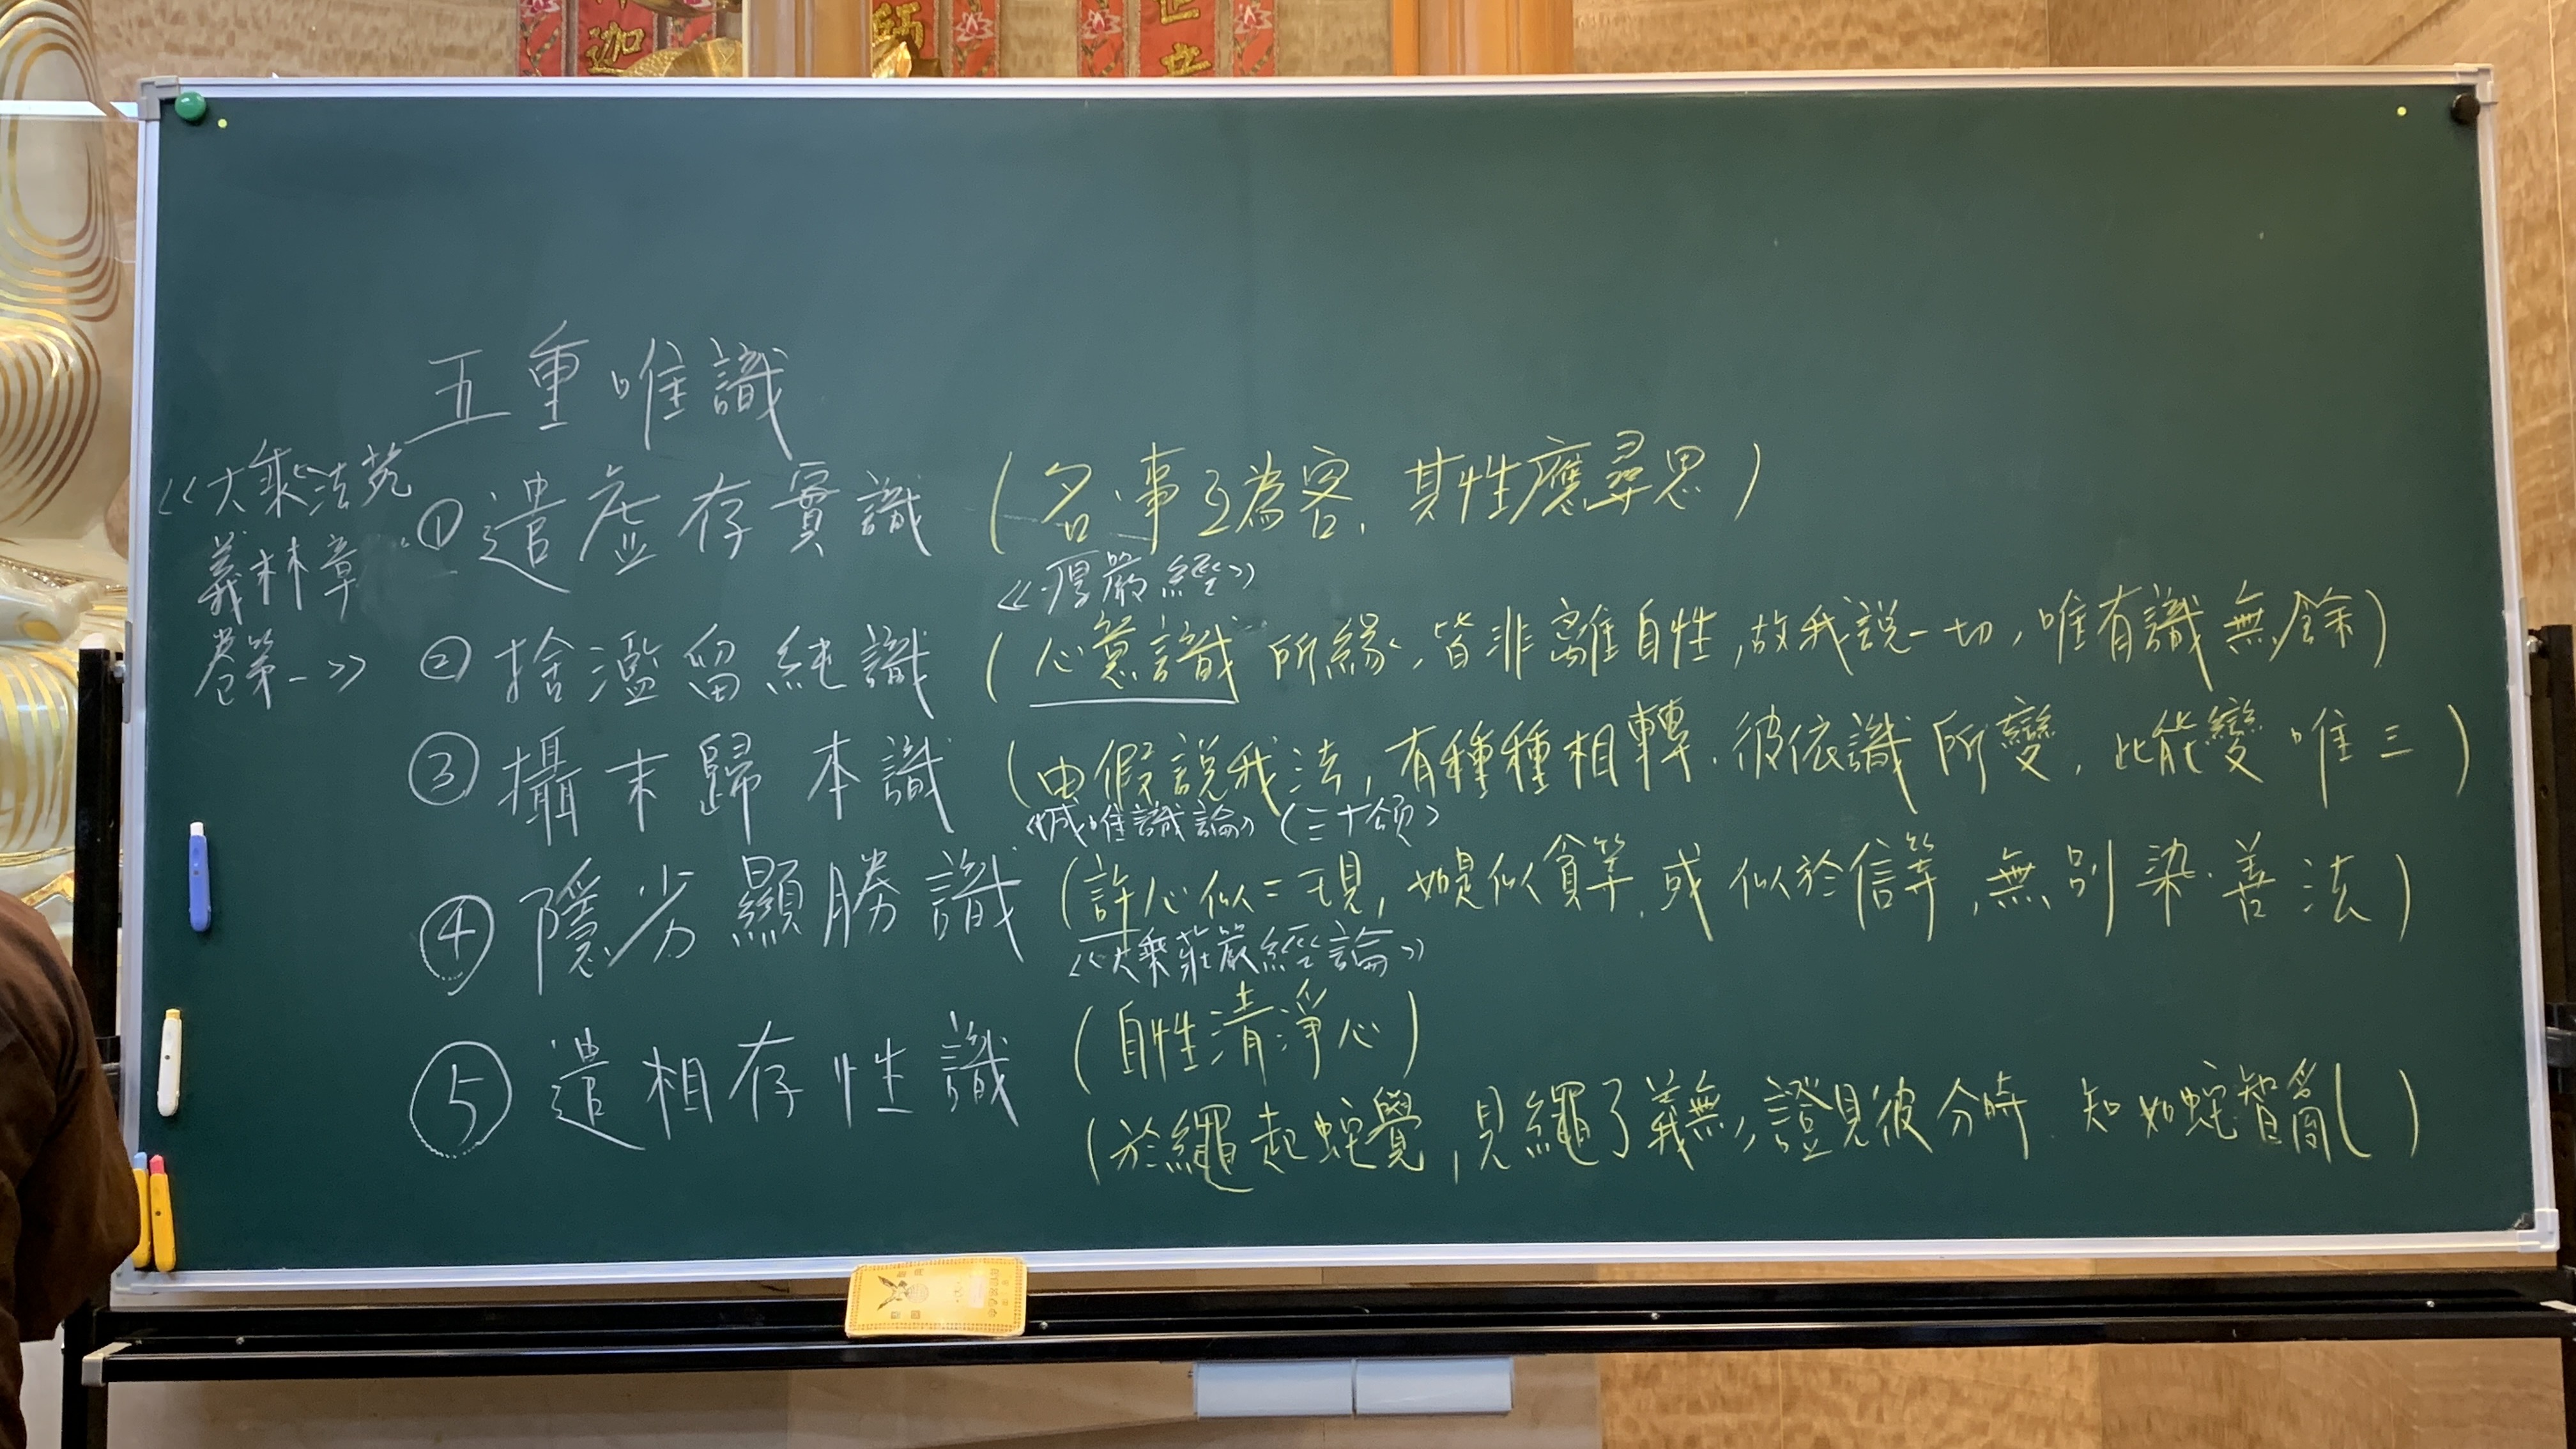 迦
師
世
五重唯識
《大乘法苑
義林章
卷第一》
① 遣虛存實識 (名、事互為客,其性應尋思)
《厚嚴經》
② 捨濫留純識 (心意識所緣,皆非離自性,故我說一切,唯有識無餘)
③ 攝末歸本識 (由假說我法,有種種相轉.彼依識所變,此能變唯三)
《成唯識論》(三十頌)
④ 隱劣顯勝識 (許心似二現,如是似貪等.或似於信等,無別染.善法)
《大乘莊嚴經論》
⑤ 遣相存性識 (自性清淨心)
(於繩起蛇覺,見繩了義無,證見彼分時.知如蛇智亂)